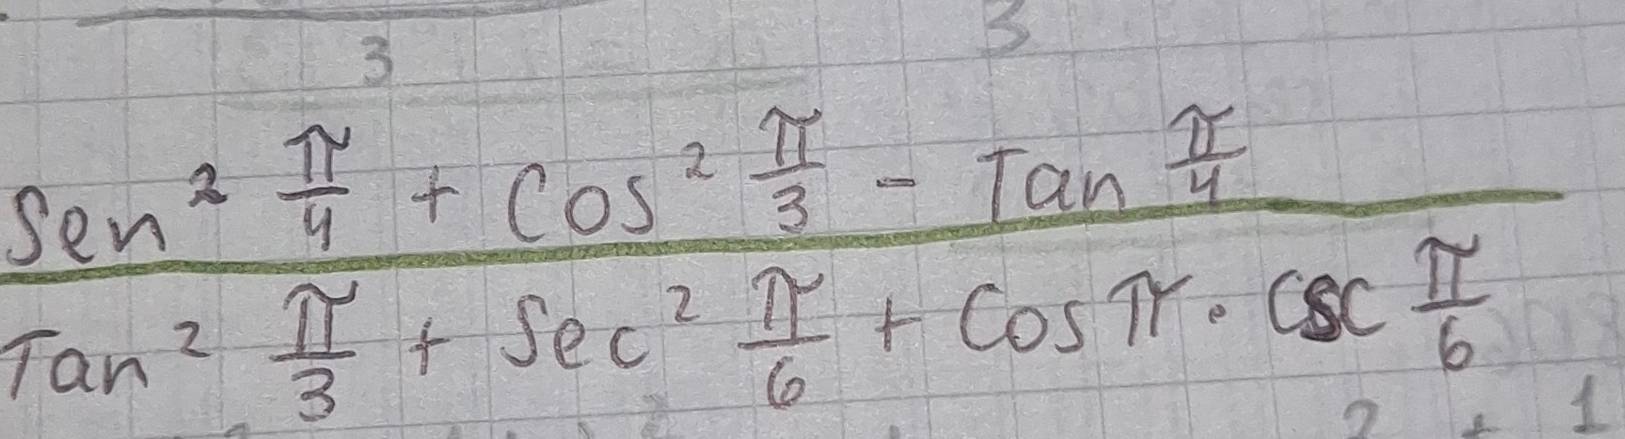 3 3
Sen² π/4 + Cos² π/3 - Tan π/4
Tan² π/3 + Sec² π/6 + Cos π · Csc π/6
2 + 1